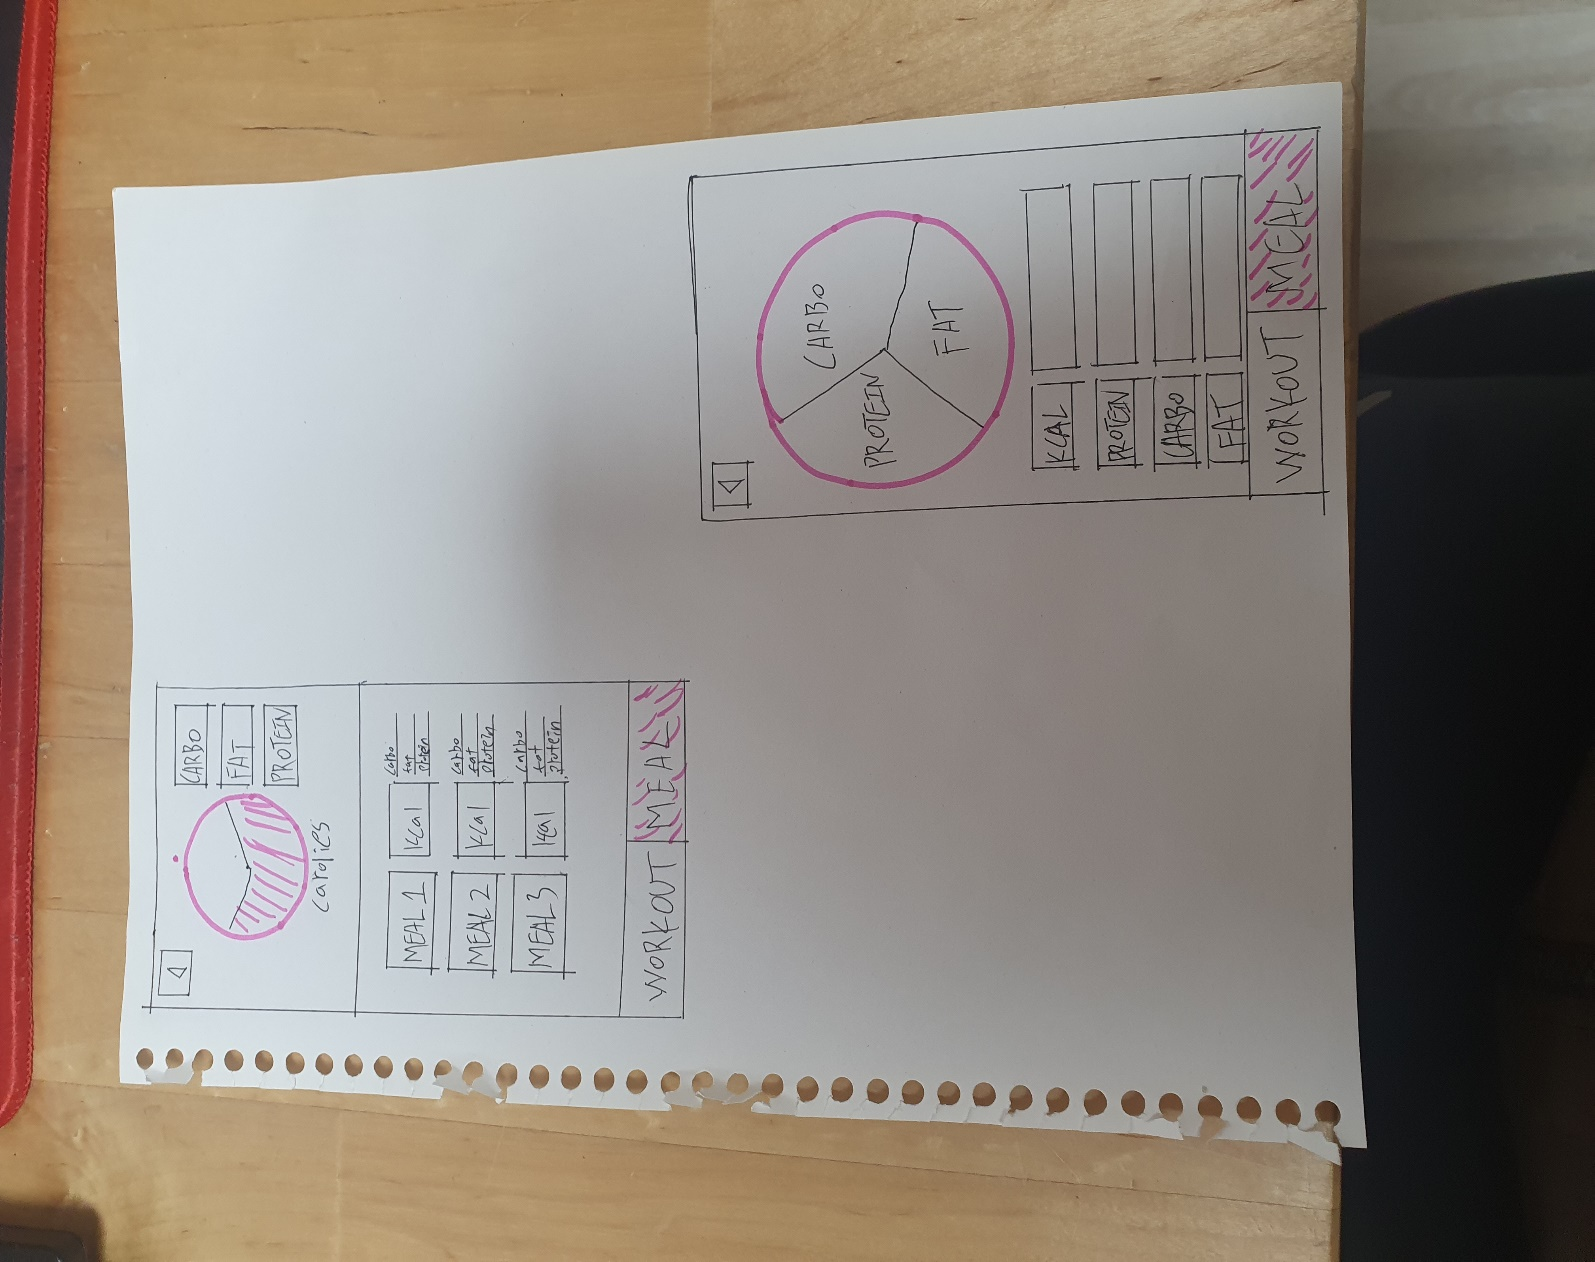 CARBO
FAT
PROTEIN
carolies
MEAL 1
Kcal
carbo
fat
protein
MEAL 2
Kcal
carbo
fat
protein
MEAL 3
Kcal
carbo
fat
protein
WORKOUT
MEAL
CARBO
PROTEIN
FAT
KCAL
PROTEIN
CARBO
FAT
WORKOUT
MEAL